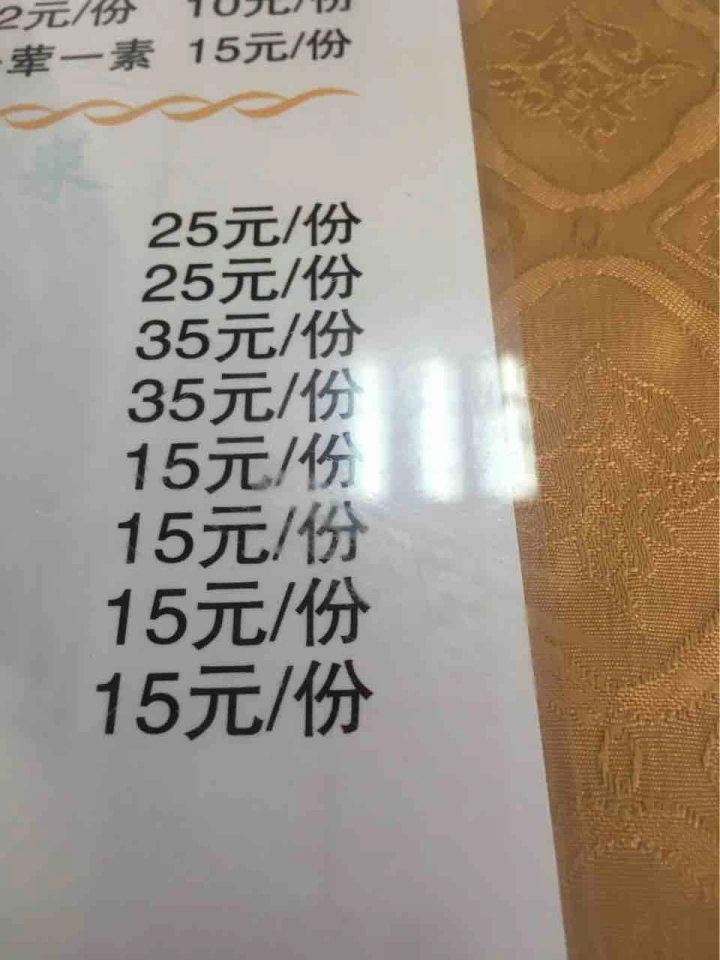 2元/份 10元/份
荤一素 15元/份
25元/份
25元/份
35元/份
35元/份
15元/份
15元/份
15元/份
15元/份